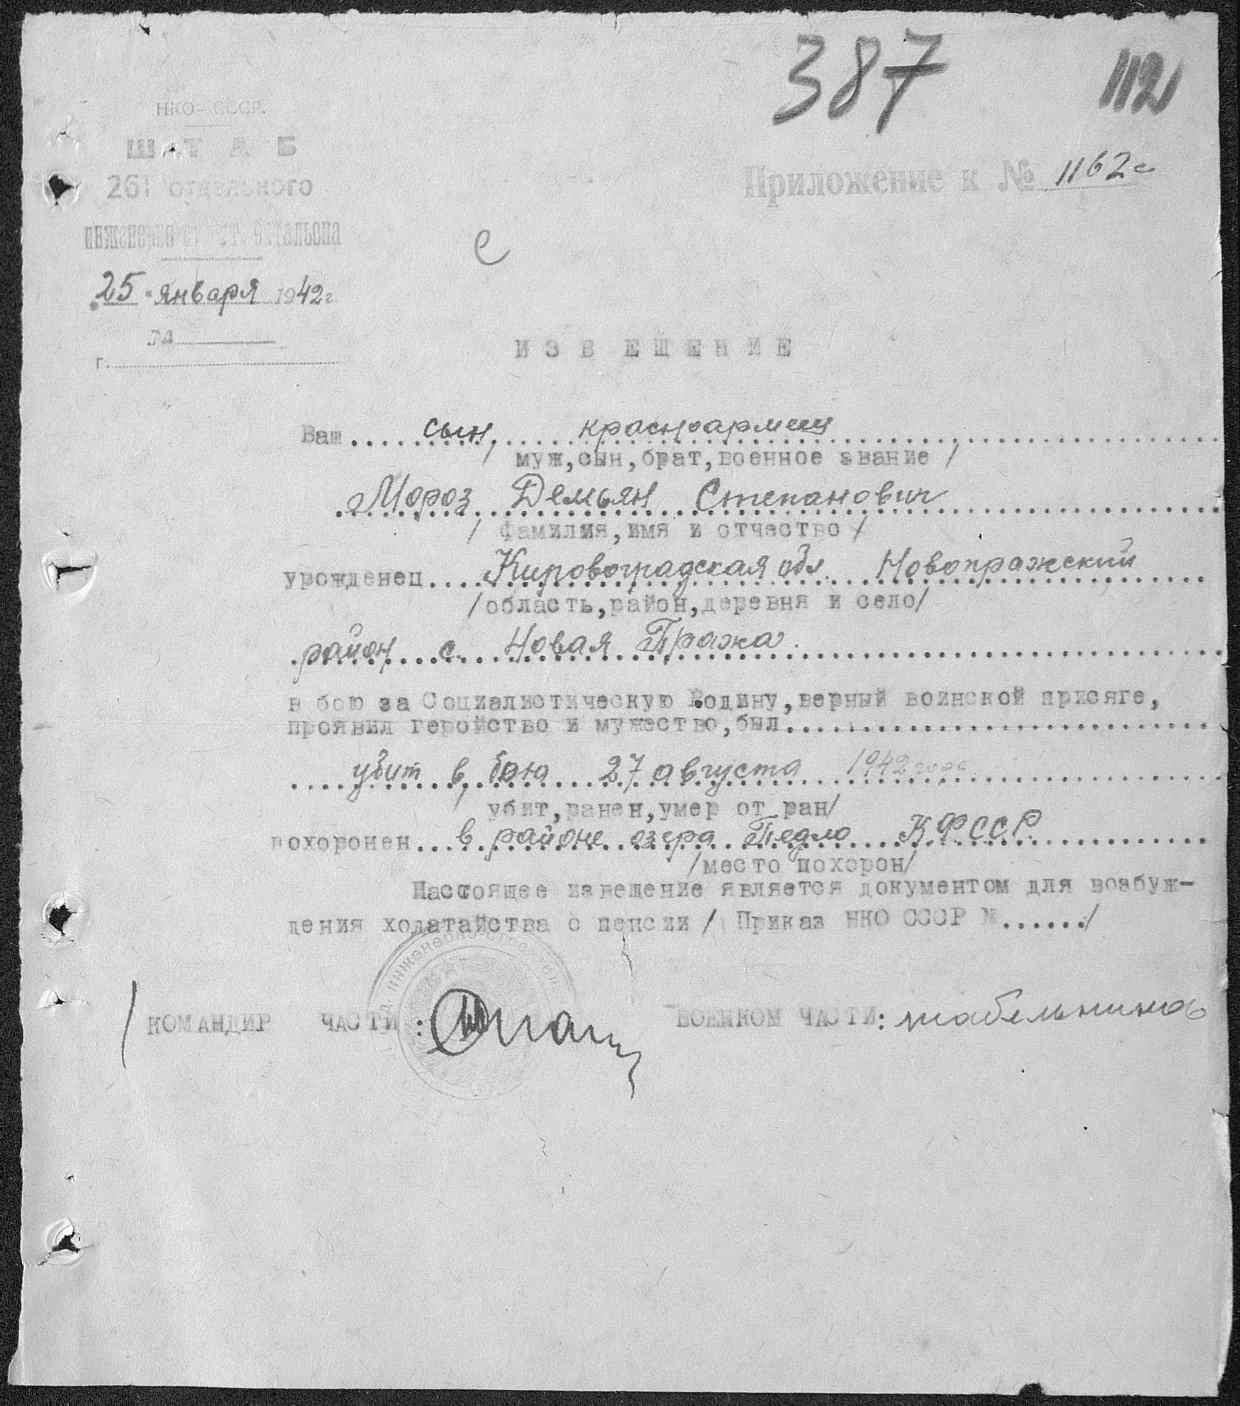 387
112
НКО-СССР.
ШТАБ
261 отдельного
Приложение к № 1162с
с
25 января 1942 г.
№
г.
ИЗВЕЩЕНИЕ
Ваш....сын,....красноармеец
/ муж,сын,брат,военное звание /
Мороз Демьян Степанович
/ фамилия,имя и отчество /
урожденец....Кировоградская обл. Новопражский
/область,район,деревня и село/
район с. Новая Прага.
в бою за Социалистическую Родину,верный воинской присяге,
проявил геройство и мужество,был
убит в бою 27 августа 1942 года
убит,ранен,умер от ран/
похоронен...в районе озера Педло КФССР.
/место похорон/
Настоящее извещение является документом для возбуж-
дения ходатайства о пенсии / Приказ НКО СССР №....../
/ КОМАНДИР ЧАСТИ: ВОЕНКОМ ЧАСТИ: